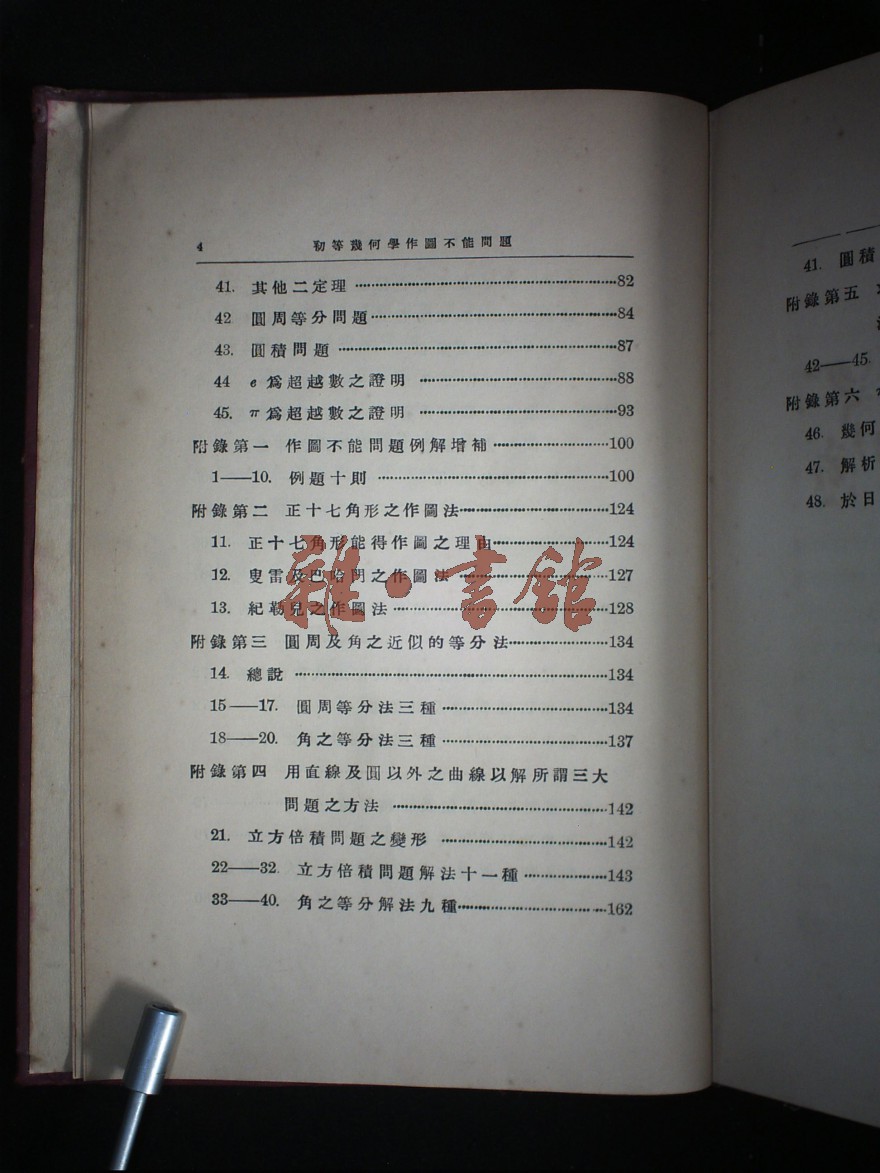 4 初等幾何學作圖不能問題
41. 其他二定理 ……82
42 圓周等分問題 ……84
43. 圓積問題 ……87
44 e 爲超越數之證明 ……88
45. π 爲超越數之證明 ……93
附錄第一 作圖不能問題例解增補 ……100
1——10. 例題十則 ……100
附錄第二 正十七角形之作圖法 ……124
11. 正十七角形能得作圖之理由 ……124
12. 叟雷及巴哈閔之作圖法 ……127
13. 紀勒兒之作圖法 ……128
雜·書館
附錄第三 圓周及角之近似的等分法 ……134
14. 總說 ……134
15——17. 圓周等分法三種 ……134
18——20. 角之等分法三種 ……137
附錄第四 用直線及圓以外之曲線以解所謂三大
問題之方法 ……142
21. 立方倍積問題之變形 ……142
22——32. 立方倍積問題解法十一種 ……143
33——40. 角之等分解法九種 ……162
41. 圓積
附錄第五
42——45.
附錄第六
46. 幾何
47. 解析
48. 於日